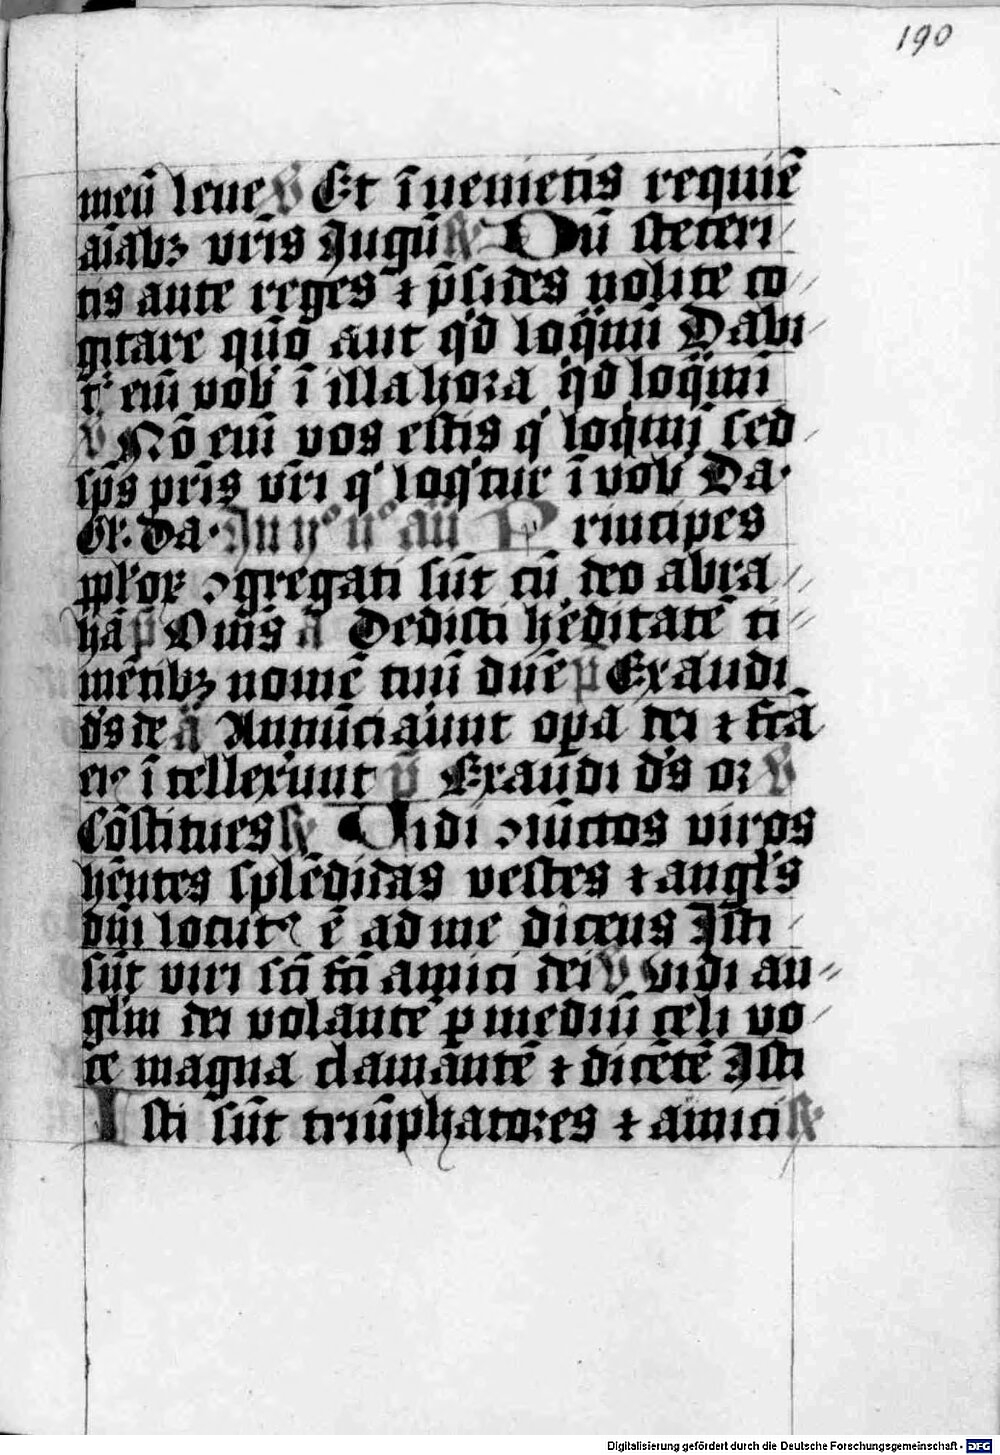 190
meū leue ℣ Et īuenietis requiē
aīabꝫ vr̄is Jugū ℟ Dū steteri
tis ante reges ⁊ p̄sides nolite co
gitare quō aut qͥd loqͣmī Dabi
t̉ em̄ vob̉ ī illa hora qͥd loqͣmī
℣ Nō em̄ vos estis qͥ loqͥmī sed
sp̄s pr̄is vr̄i qͥ loqͥtur ī vob̉ Da·
Gl̉. Da· Jn ııº nº añ Principes
ppl̉oꝝ ꝯgregati sūt cū deo abra
hā p̄ Om̄s añ Dedisti h̉editatē ti
mētibꝫ nomē tuū dn̄e p̄ Exaudi
d̉s de añ Annūciauūt oꝑa dei ⁊ fc̄a
eiꝰ ītellexūt p̄ Exaudi d̉s or ℣
Cōstitues ℟ Vidi ꝯiūctos viros
hn̄tes splēdidas vestes ⁊ angl̉s
dn̄i locutꝰ ē ad me dicens Jsti
sūt viri sc̄i fc̄i amici dei ℣ Vidi an
glm̄ dei volantē ꝑ mediū celi vo
ce magna clamantē ⁊ dicētē Jsti
Isti sūt triūphatores ⁊ amici ℟
Digitalisierung gefördert durch die Deutsche Forschungsgemeinschaft - DFG